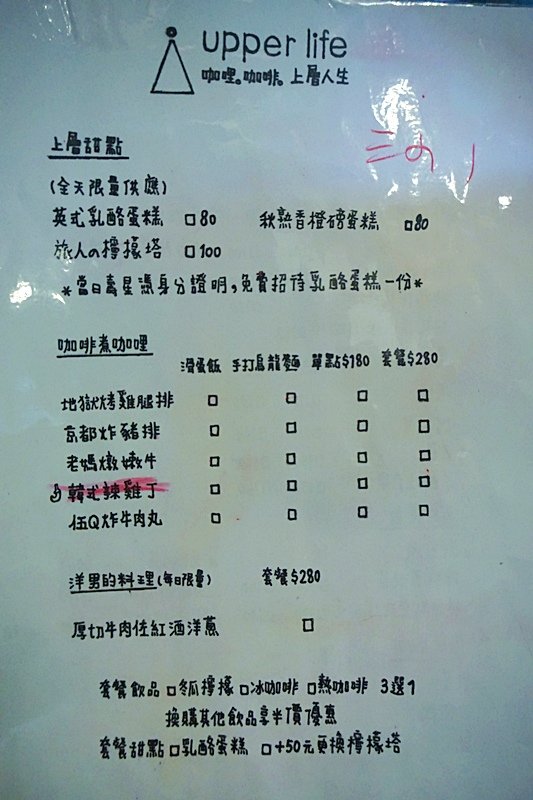 upper life
咖哩。咖啡。上層人生
上層甜點
(全天限量供應)
英式乳酪蛋糕 □80 秋熟香橙磅蛋糕 □80
旅人の檸檬塔 □100
*當日壽星憑身分證明,免費招待乳酪蛋糕一份*
咖啡煮咖哩
滑蛋飯 手打烏龍麵 單點$180 套餐$280
地獄烤雞腿排 □ □ □ □
京都炸豬排 □ □ □ □
老媽燉嫩牛 □ □ □ □
韓式辣雞丁 □ □ □ □
伍Q炸牛肉丸 □ □ □ □
洋男的料理(每日限量) 套餐$280
厚切牛肉佐紅酒洋蔥 □
套餐飲品 □冬瓜檸檬 □冰咖啡 □熱咖啡 3選1
換購其他飲品享半價優惠
套餐甜點 □乳酪蛋糕 □+50元更換檸檬塔